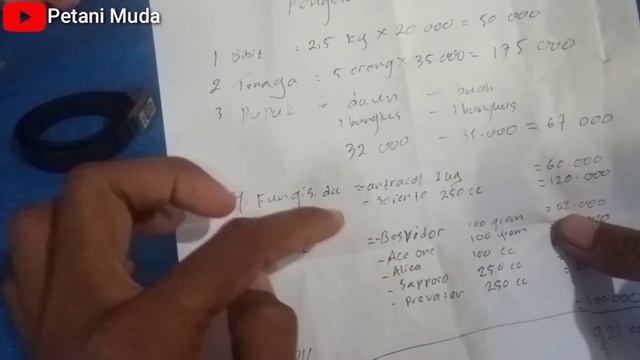 Petani Muda
1 Bibit : 2,5 kg x 20 000 = 50 000
2 Tenaga : 5 orang x 35 000 = 175 000
3 Pupuk - daun - buah
1 bungkus - 1 bungkus
32 000 - 35.000 = 67 000
4. Fungisida = antracol 1 kg = 60.000
- Sorento 250 cc = 120.000
=- Bespidor 100 gram = 22.000
- Ace one 100 gram
- Alica 100 cc
- Sapporo 250 cc
- Prevaton 250 cc
100.000